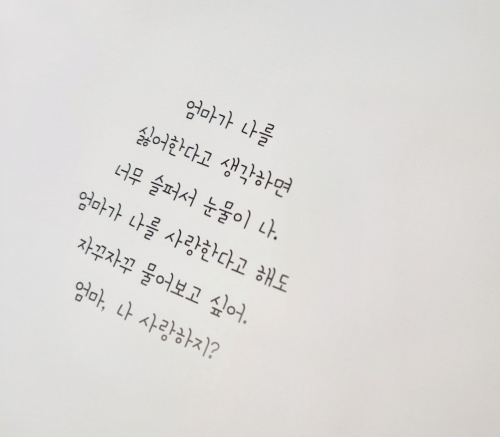 엄마가 나를
싫어한다고 생각하면
너무 슬퍼서 눈물이 나.
엄마가 나를 사랑한다고 해도
자꾸자꾸 물어보고 싶어.
엄마, 나 사랑하지?